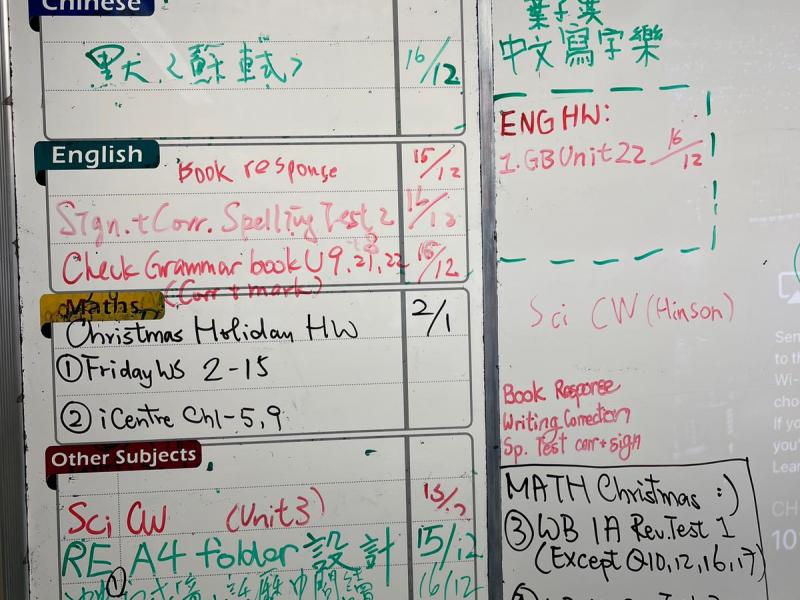 Chinese
默犬〈蘇軾〉 16/12
English
Book response 15/12
Sign.+Corr. Spelling Test 2 16/12
Check Grammar book U9,21,22 16/12
(Corr + mark)
Maths
Christmas Holiday HW 2/1
① Friday WS 2-15
② iCentre Ch1-5,9
Other Subjects
Sci CW (Unit3)
RE A4 folder 設計 15/12
① 16/12
葉子淇
中文寫字樂
ENG HW:
1. GB Unit 22 16/12
Sci CW (Hinson)
Book Response
Writing Correction
Sp. Test corr+sign
MATH Christmas :)
③ WB 1A Rev. Test 1
(Except Q10,12,16,17)
Sen
to th
Wi-
cho
If yo
you'
Lear
CH
10